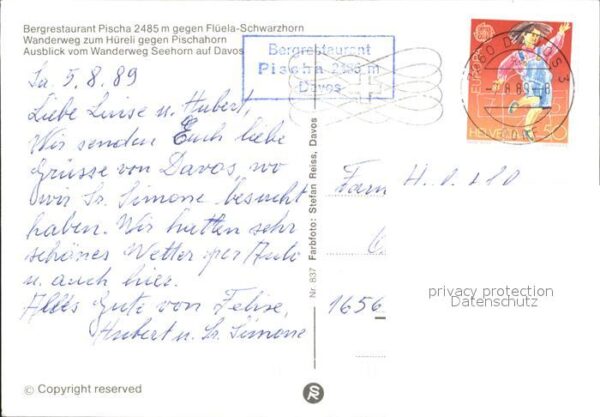 Bergrestaurant Pischa 2485 m gegen Flüela-Schwarzhorn
Wanderweg zum Hüreli gegen Pischahorn
Ausblick vom Wanderweg Seehorn auf Davos
Bergrestaurant
Pischa 2485 m
Davos
Sa, 5.8.89
Liebe Luise u. Hubert,
Wir senden Euch liebe
Grüsse von Davos, wo
wir Sr. Simone besucht
haben. Wir hatten sehr
schönes Wetter per Auto
u. auch hier.
Alles Gute von Felise,
Hubert u. Sr. Simone
© Copyright reserved
Nr. 837 Farbfoto: Stefan Reiss, Davos
DAVOS 3
8.89
EUROPA
HELVETIA 50
Fam H.
1656
privacy protection
Datenschutz